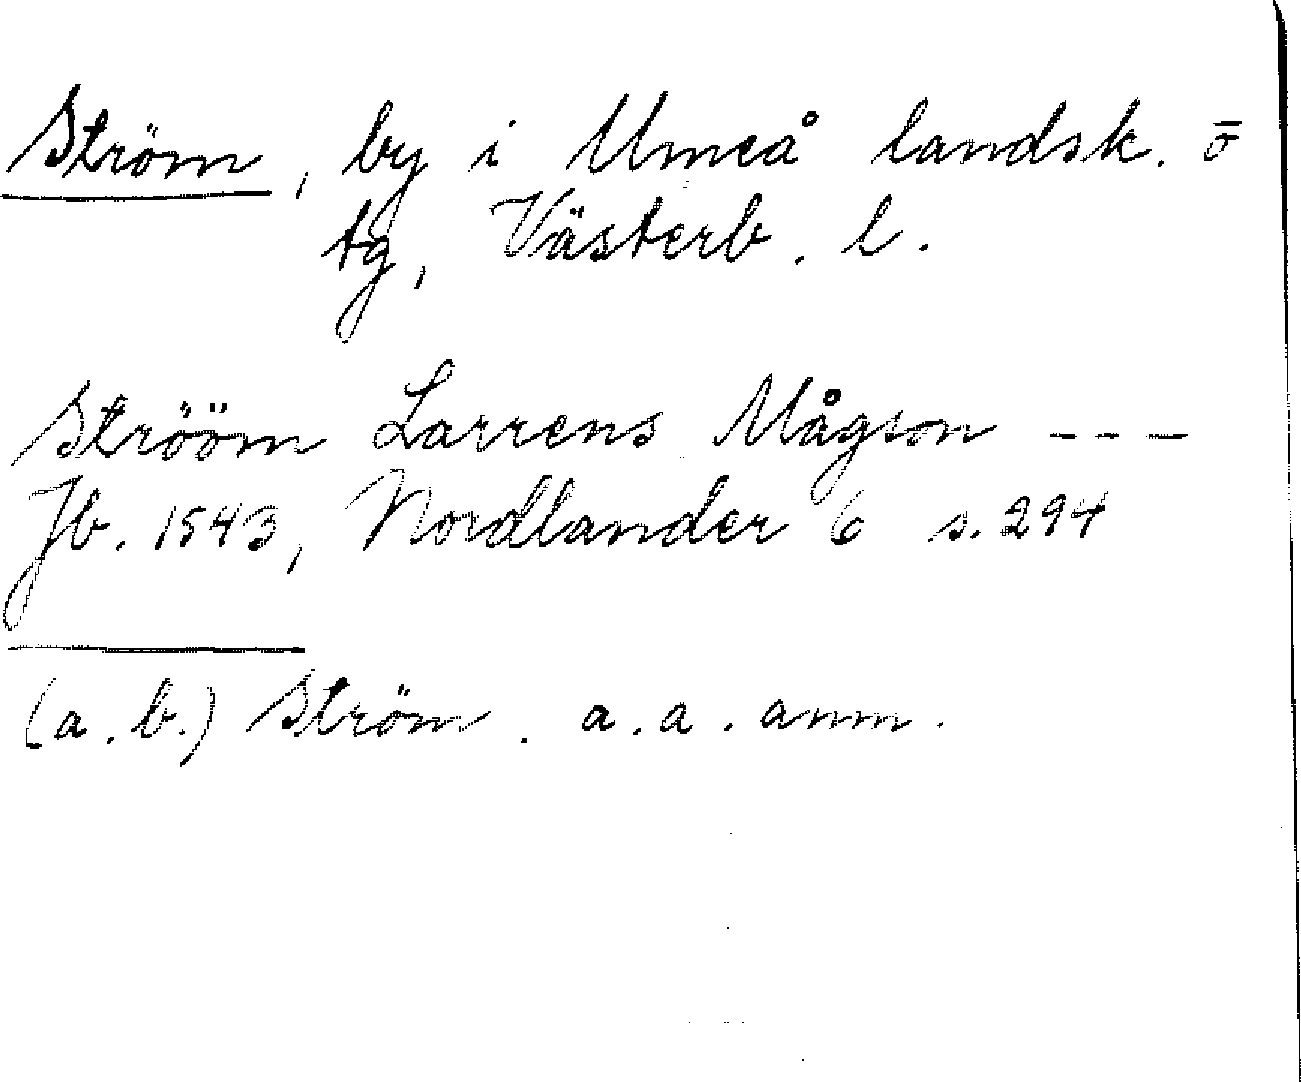 Ström, by i Umeå landsk. ō
tg, Västerb. l.
Strööm Larrens Mågson ---
Jb. 1543, Nordlander 6 s. 294
(a.b.) Ström. a.a. anm.